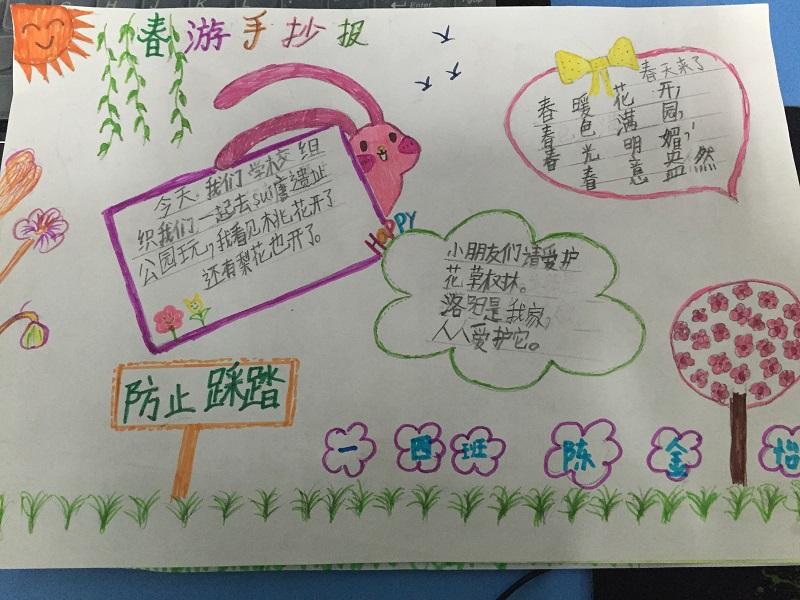 春游手抄报
春天来了
春暖花开,
春色满园,
春光明媚,
春意盎然
今天,我们学校组
织我们一起去suí唐遗址
公园玩,我看见桃花开了
还有梨花也开了。
HAPPY
小朋友们请爱护
花草
洛阳是我家,
人人爱护它。
防止踩踏
一四班 陈金怡